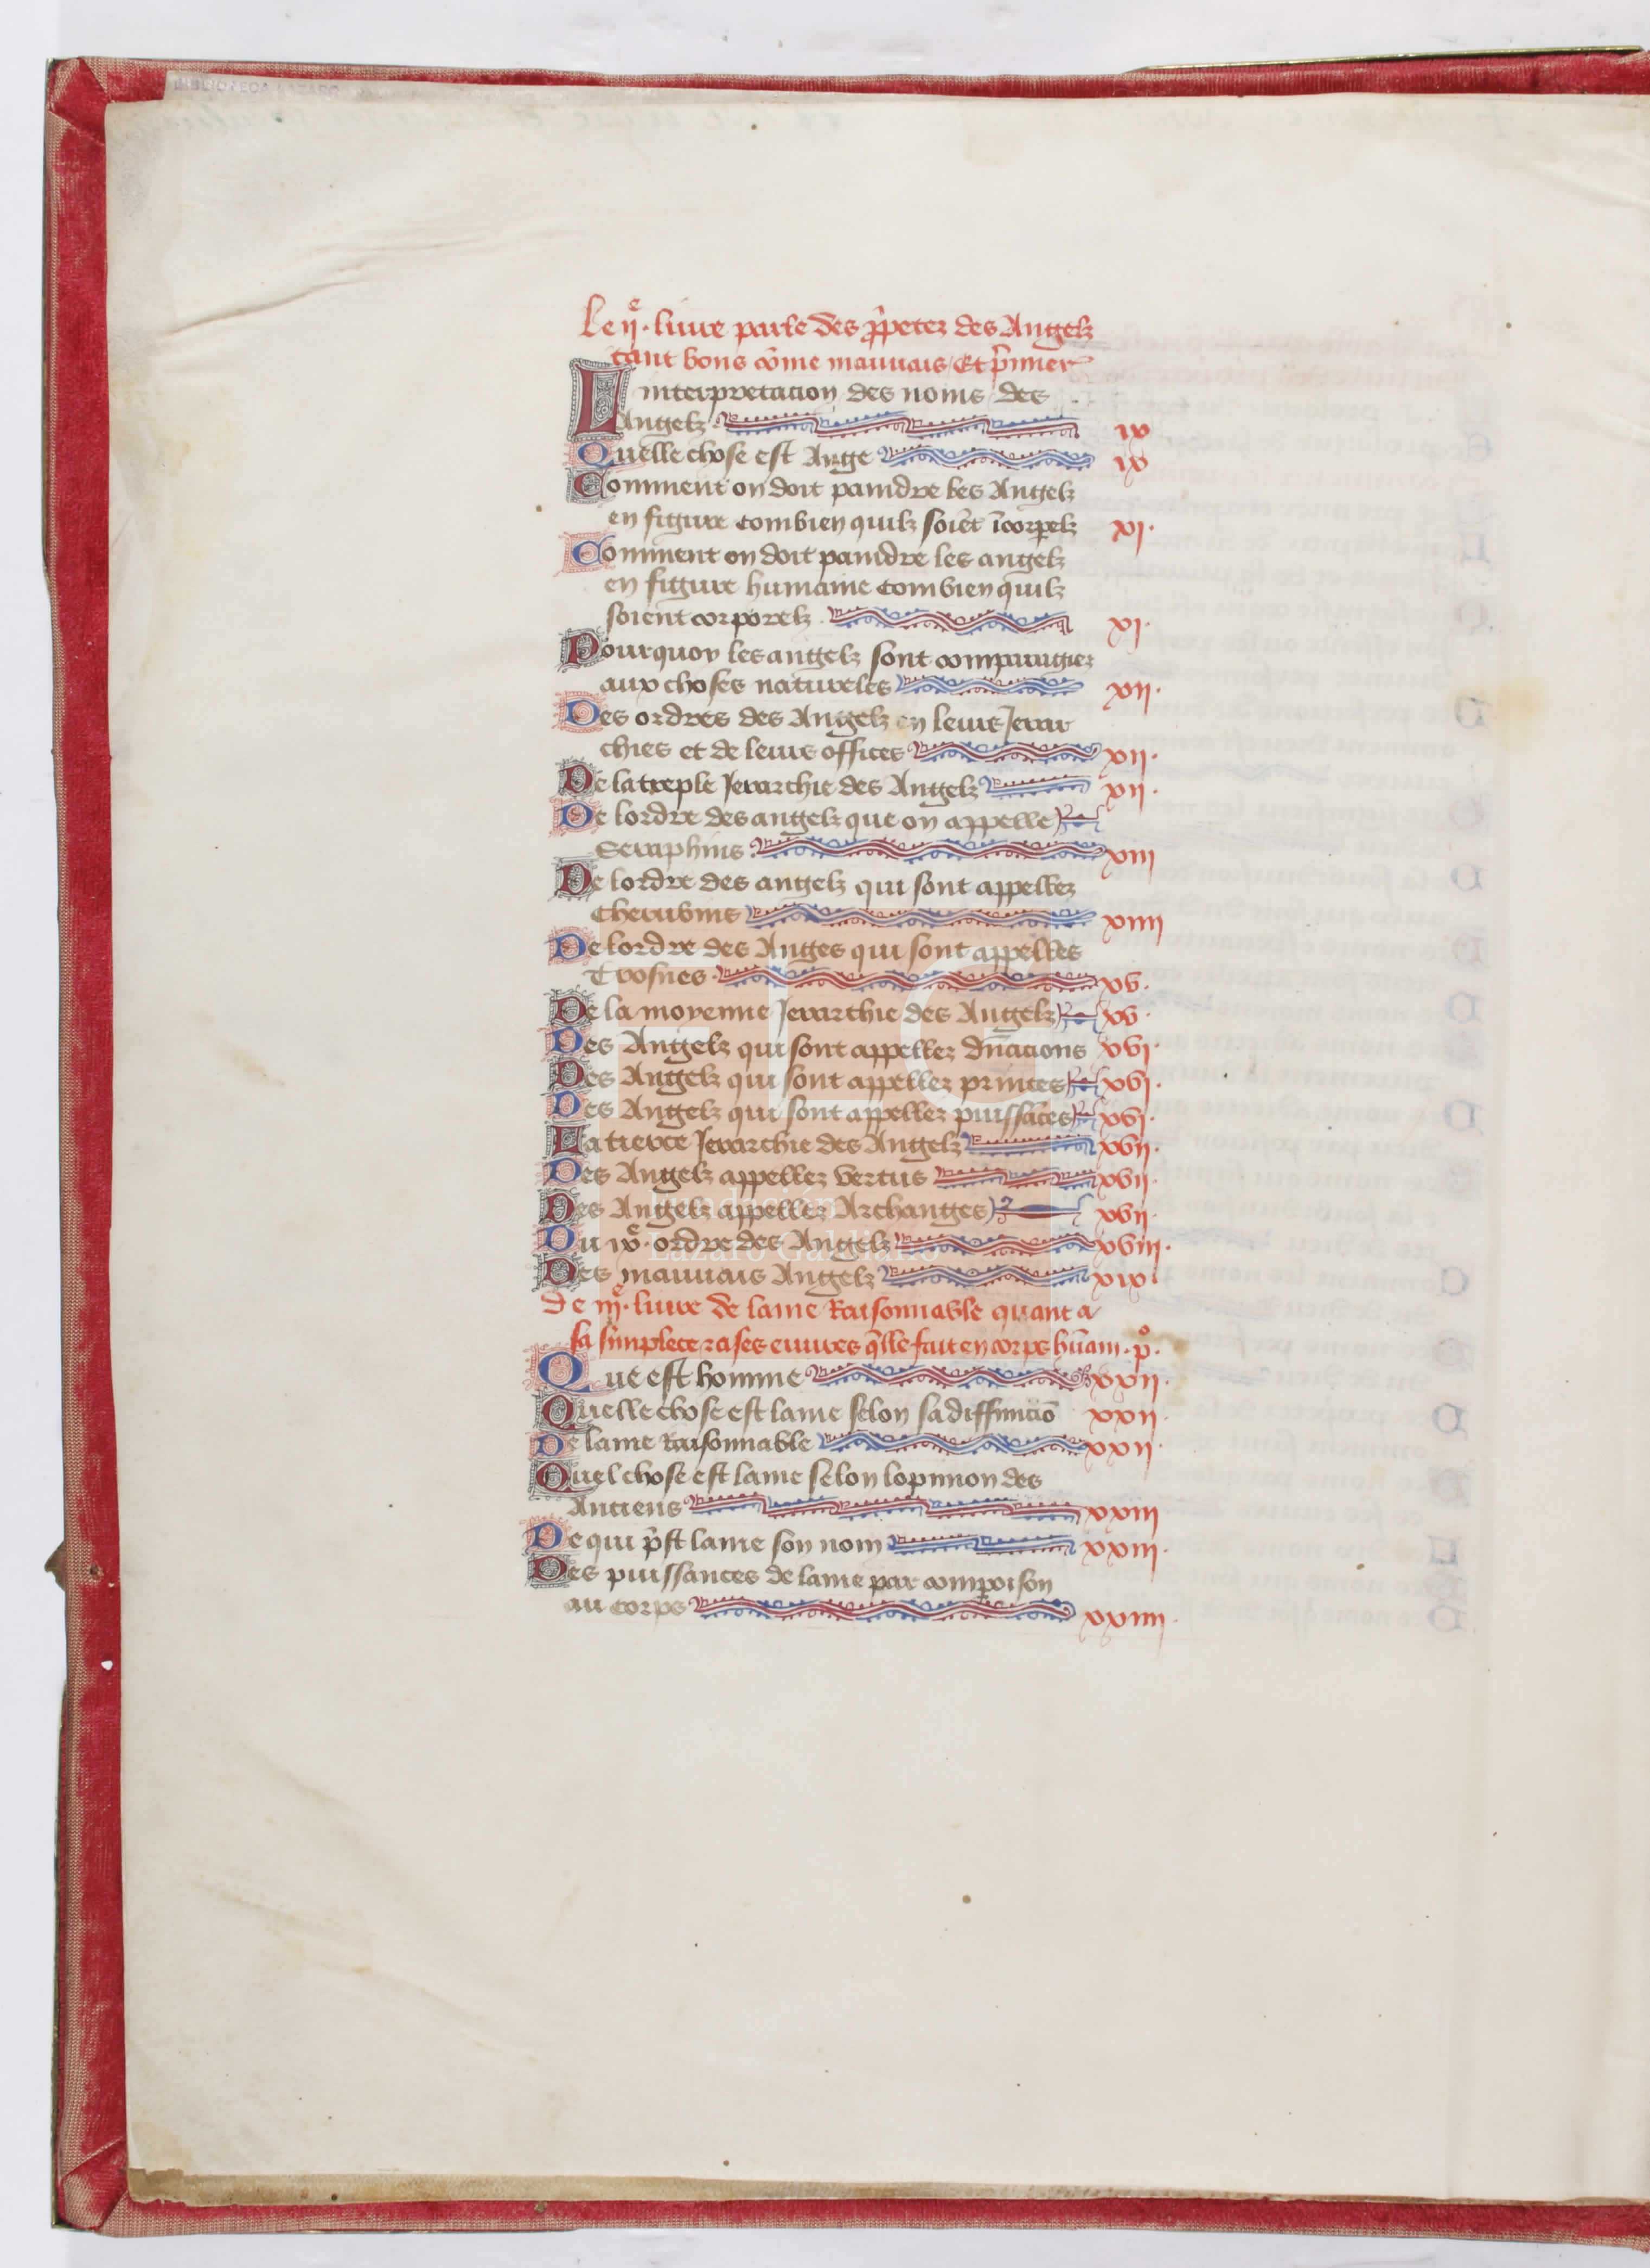 BIBLIOTECA LAZARO
Le ijͤ. liure parle des p̄petez des Angelz
tant bons cōme mauuais Et p̄mier
Linterpretacion des noms des
Angelz ix
Quelle chose est Ange ix
Comment on doit paindre les Angelz
en figure combien quilz soiēt īcorpelz xj.
Comment on doit paindre les angelz
en figure humaine combien quilz
soient corporelz. xj.
Pourquoy les angelz sont comparagiez
aux choses natureles xij.
Des ordres des Angelz en leurs Jerar
chies et de leurs offices xij.
De la treple Jerarchie des Angelz xij.
De lordre des angelz que on appelle
Seraphins. xiij
De lordre des angelz qui sont appellez
Cherubins xiiij
De lordre des Anges qui sont appelles
Trosnes. xv.
De la moyenne Jerarchie des Angelz xv.
Des Angelz qui sont appellez dn̄acions xvj.
Des Angelz qui sont appellez princes xvj.
Des Angelz qui sont appellez puissāces xvj.
La tierce Jerarchie des Angelz xvij.
Des Angelz appellez vertus xvij.
Des Angelz appellez Archanges xvij.
Du ixͤ. ordre des Angelz xviij.
Des mauuais Angelz xix.
De iijͤ. liure de lame Raisonnable quant a
sa simplece z a ses euures q̄lle fait en corps hūain. p̊.
Que est homme xxij.
Quelle chose est lame selon sa diffinicō xxij.
De lame Raisonnable xxij.
Quel chose est lame selon lopinion des
Anciens xxiij
De qui p̄st lame son nom xxiij.
Des puissances de lame par compoison
au corps xxiiij.
FLG
Fundación
Lázaro Galdiano